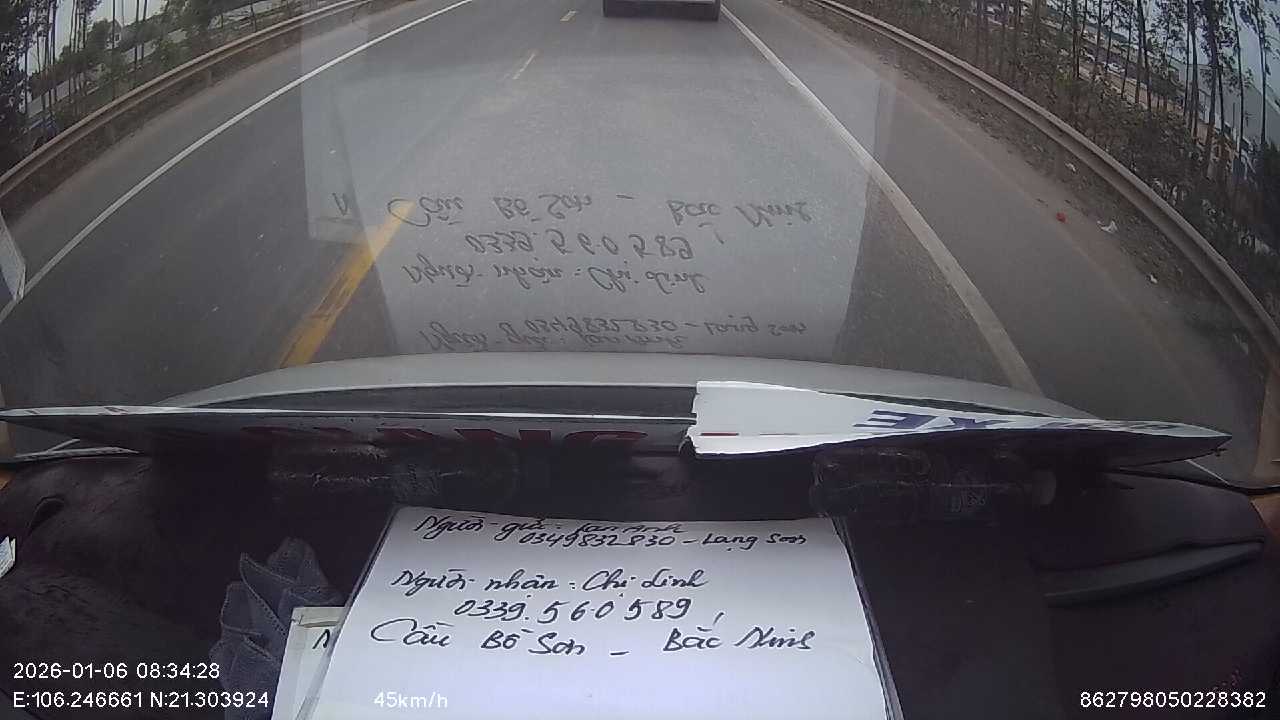 XE
GIANG
Người gửi: Lan Anh
0349832830 - Lạng Sơn
Người nhận: Chị Linh
0339.560589,
Cầu Bồ Sơn - Bắc Ninh
N
2026-01-06 08:34:28
E:106.246661 N:21.303924
45km/h
862798050228382